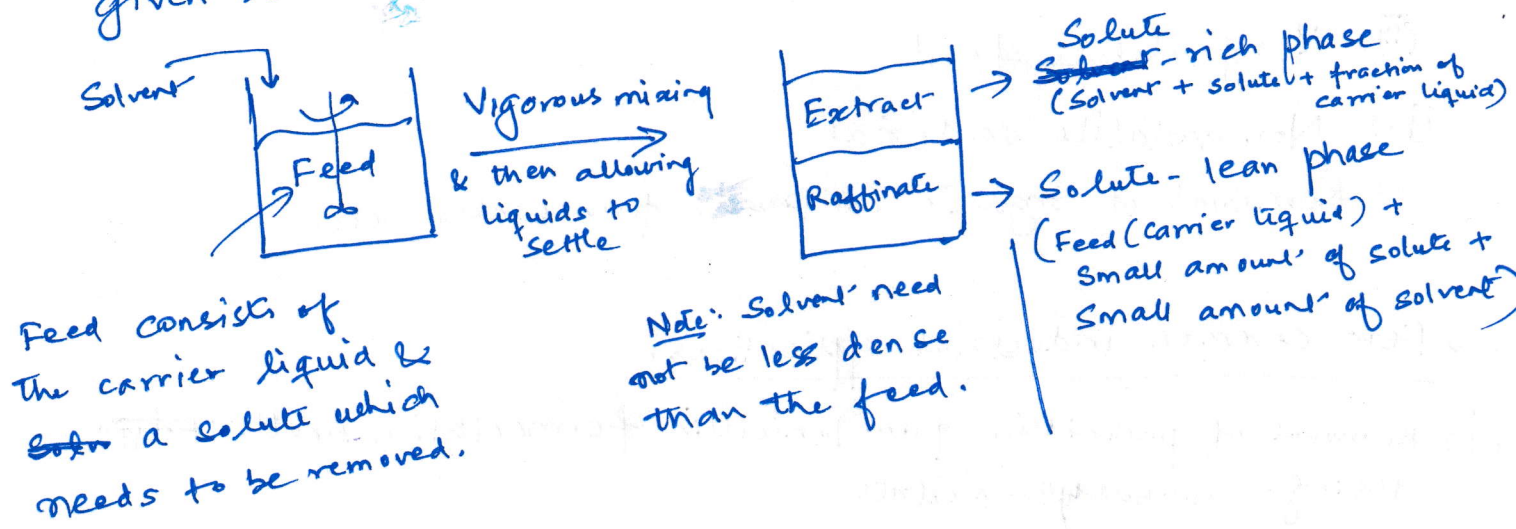 given
Solvent
Feed
Vigorous mixing
& then allowing
liquids to
settle
Extract
Raffinate
Solute
Solvent-rich phase
(Solvent + solute + fraction of
carrier liquid)
Solute-lean phase
(Feed (carrier liquid) +
small amount of solute +
small amount of solvent)
Feed consists of
the carrier liquid &
a solute which
needs to be removed.
Note: Solvent need
not be less dense
than the feed.